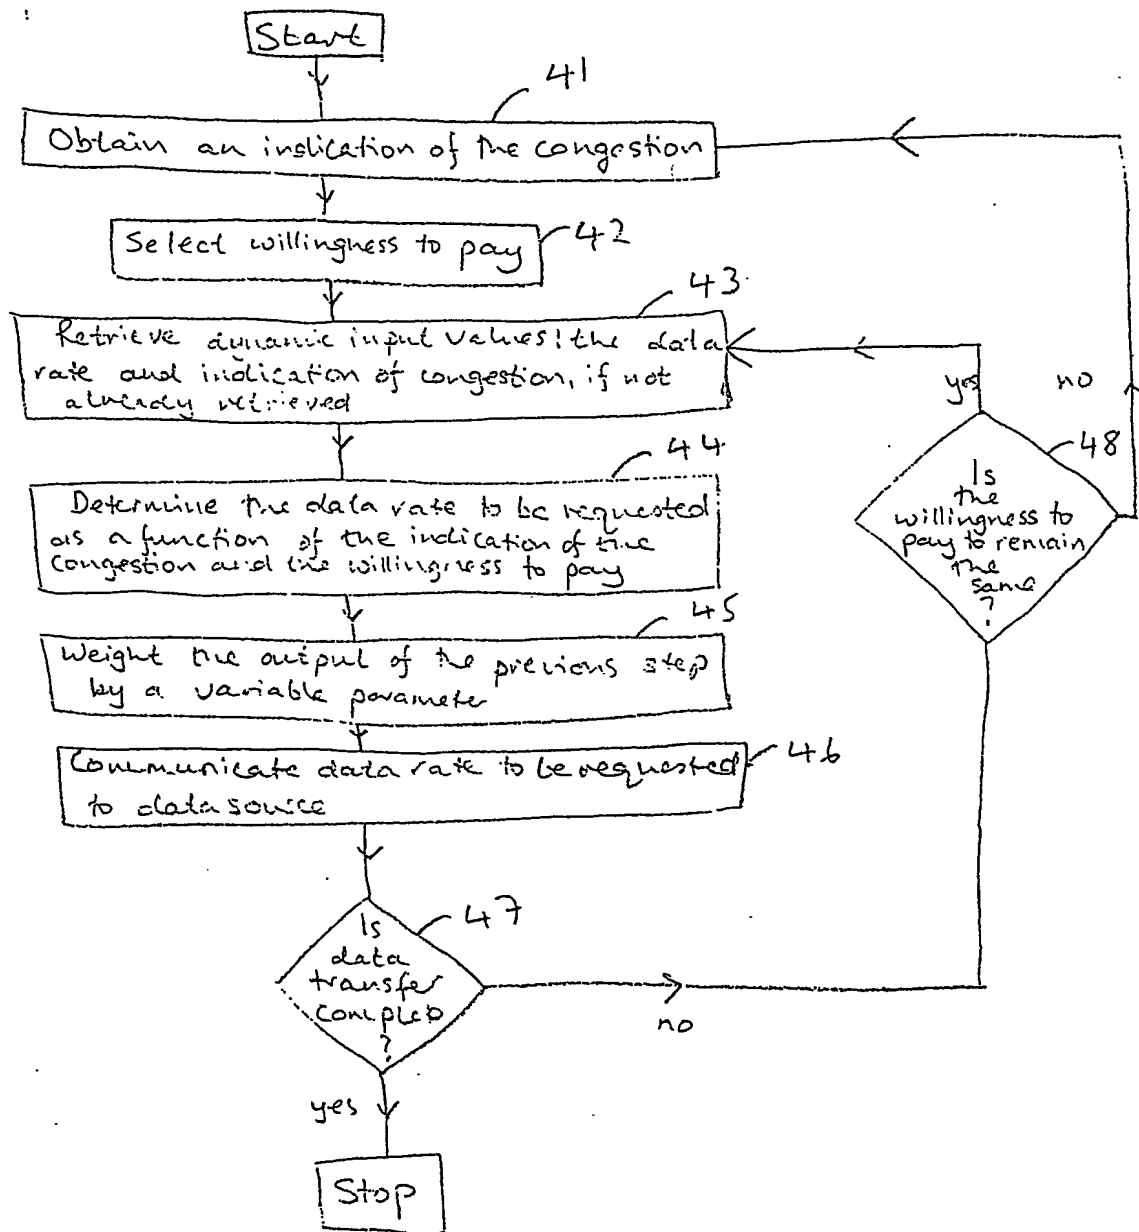 Start
41
Obtain an indication of the congestion
Select willingness to pay
42
43
Retrieve dynamic input values: the data
rate and indication of congestion, if not
already retrieved
44
Determine the data rate to be requested
as a function of the indication of the
congestion and the willingness to pay
45
Weight the output of the previous step
by a variable parameter
Communicate data rate to be requested
to data source
46
47
Is
data
transfer
complete
?
no
yes
Stop
yes
no
48
Is
the
willingness to
pay to remain
the
same
?